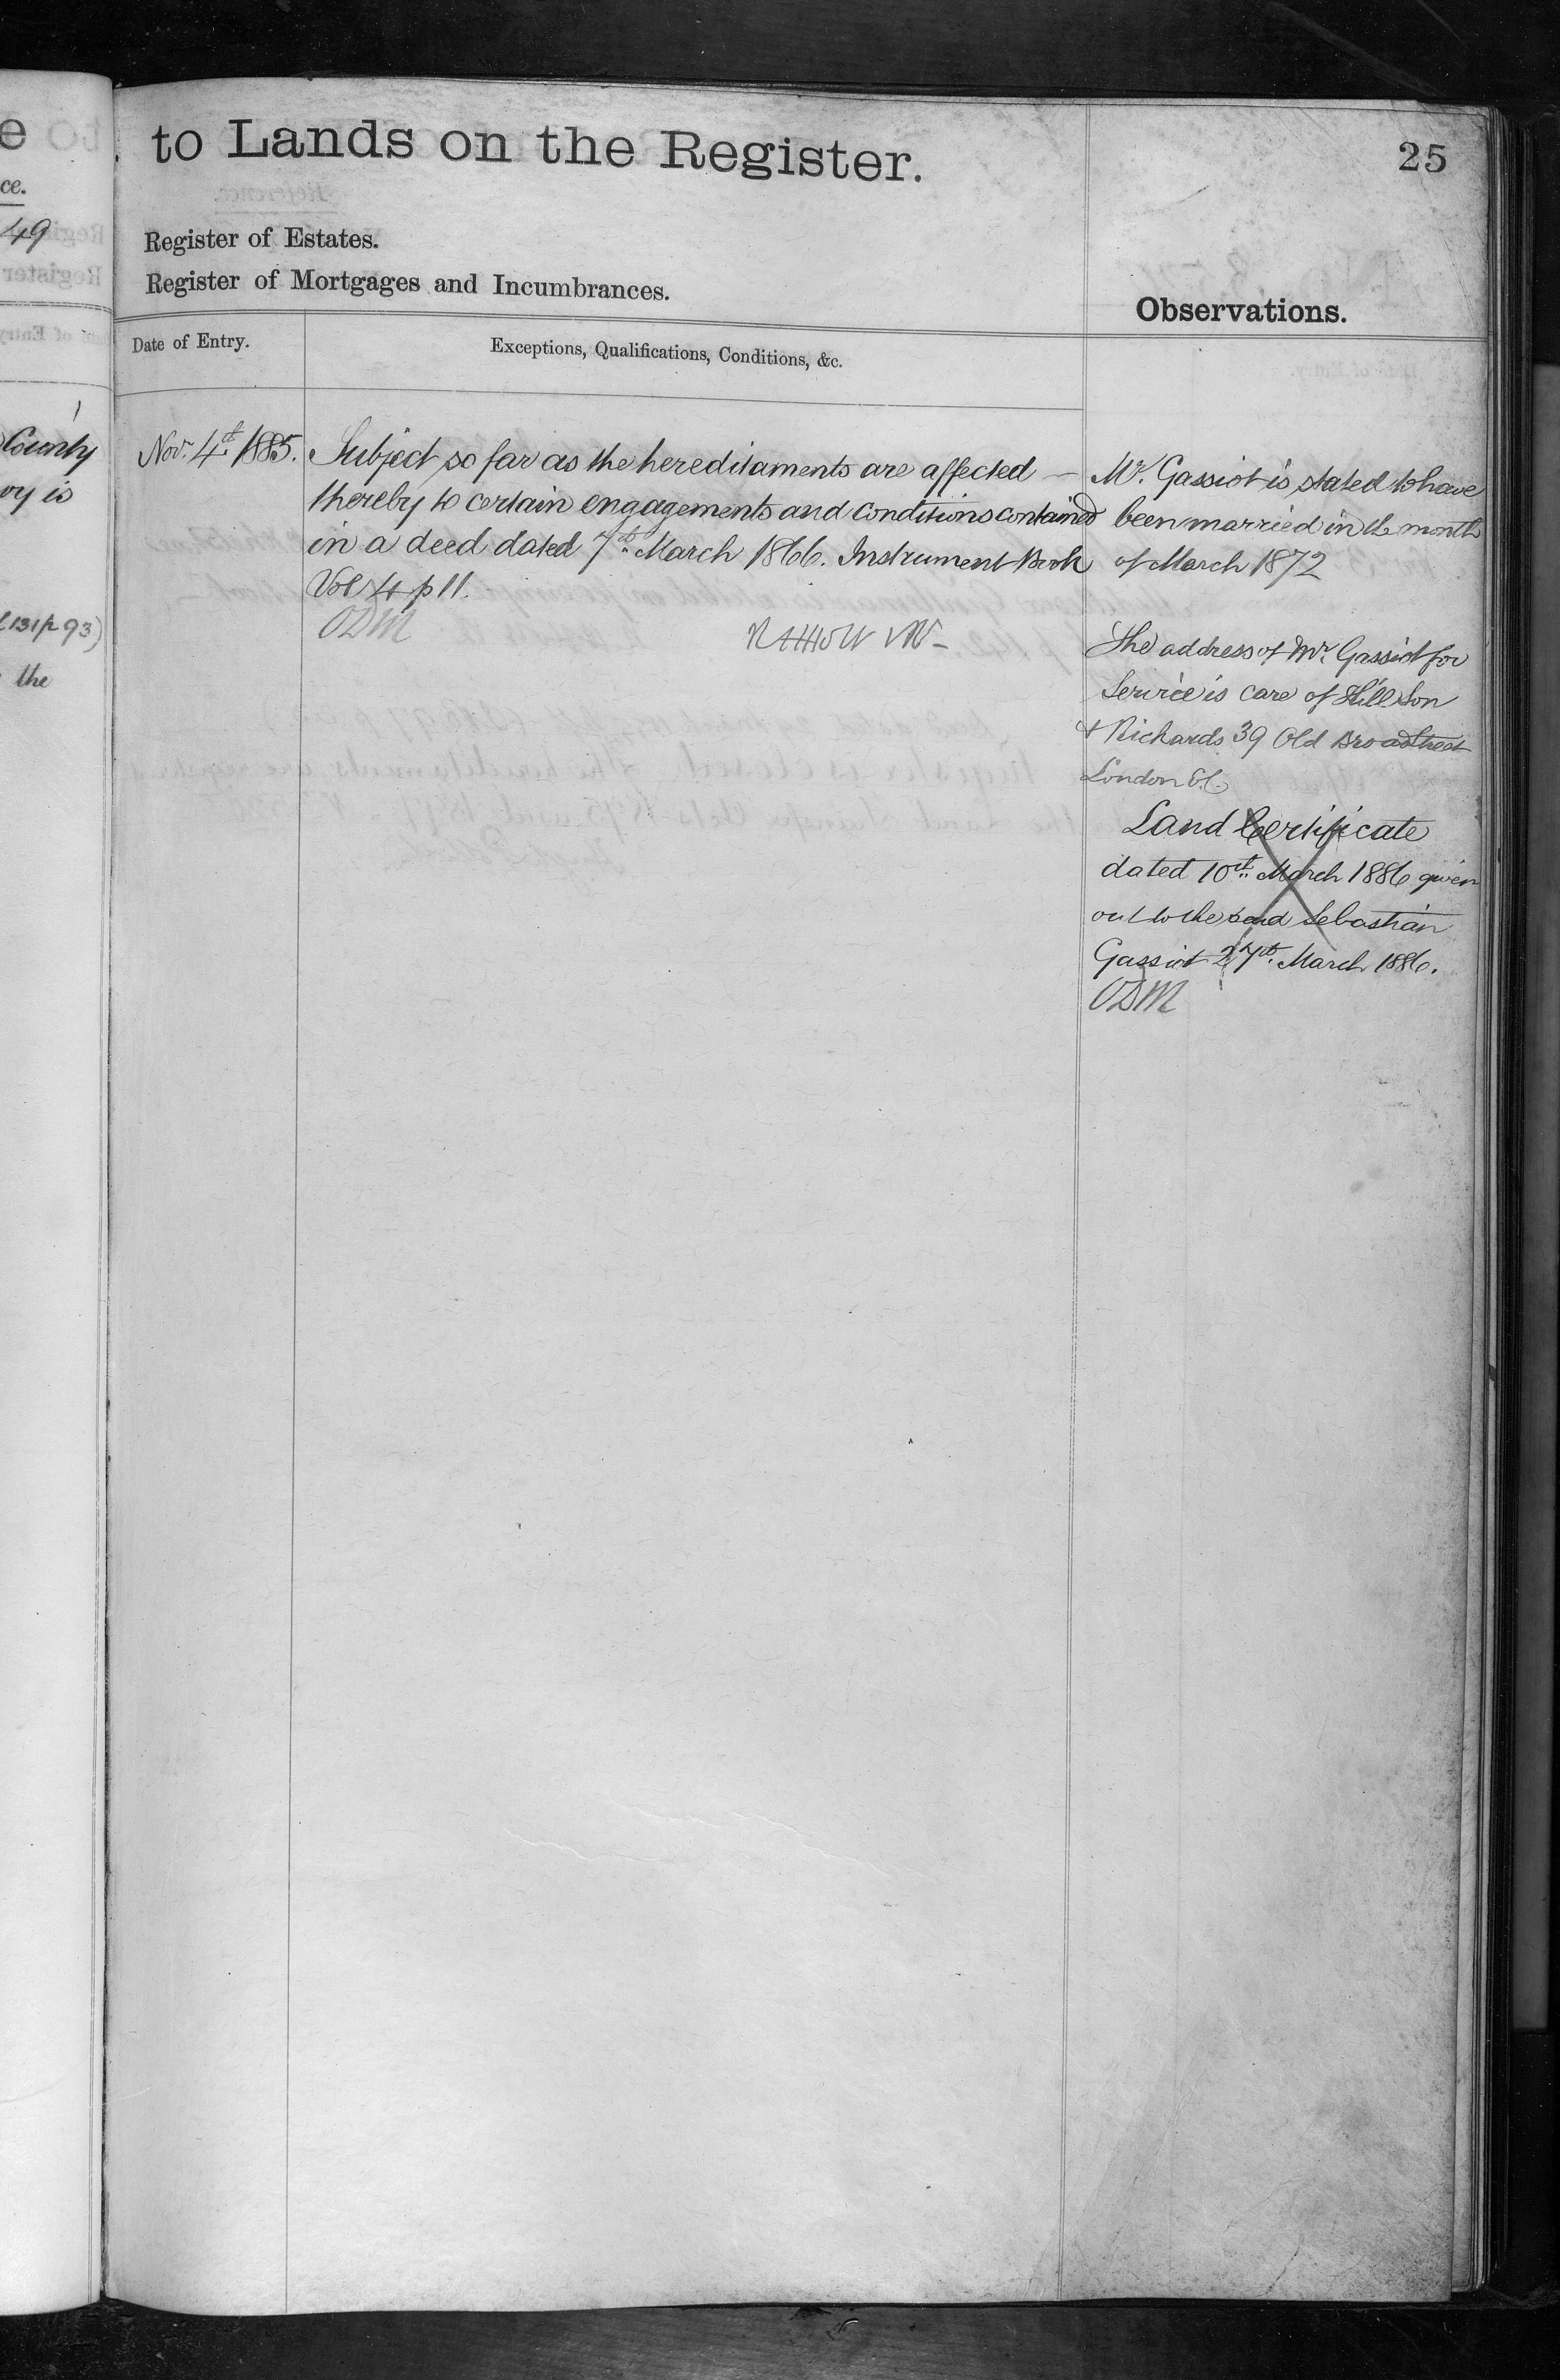 e
ce.
49
County
oy is
131 p 93)
the
to Lands on the Register.
25
Register of Estates.
Register of Mortgages and Incumbrances.
Observations.
Date of Entry.
Exceptions, Qualifications, Conditions, &c.
Nov. 4th 1885.
Subject so far as the hereditaments are affected —
thereby to certain engagements and conditions contained
in a deed dated 7th March 1866. Instrument Book
Vol 4 p 11.
ODM
Mr. Gassiot is stated to have
been married in the month
of March 1872
The address of Mr. Gassiot for
Service is care of Hill Son
& Richards 39 Old Broad Street
London E.C.
Land Certificate
dated 10th March 1886 given
out to the said Sebastian
Gassiot 27th March 1886.
ODM